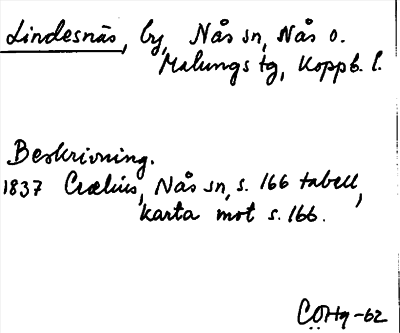 Lindesnäs, by, Nås sn, Nås o.
Malungs tg, Koppb. l.
Beskrivning.
1837 Crælius, Nås sn, s. 166 tabell,
karta mot s. 166.
CÖHg -62